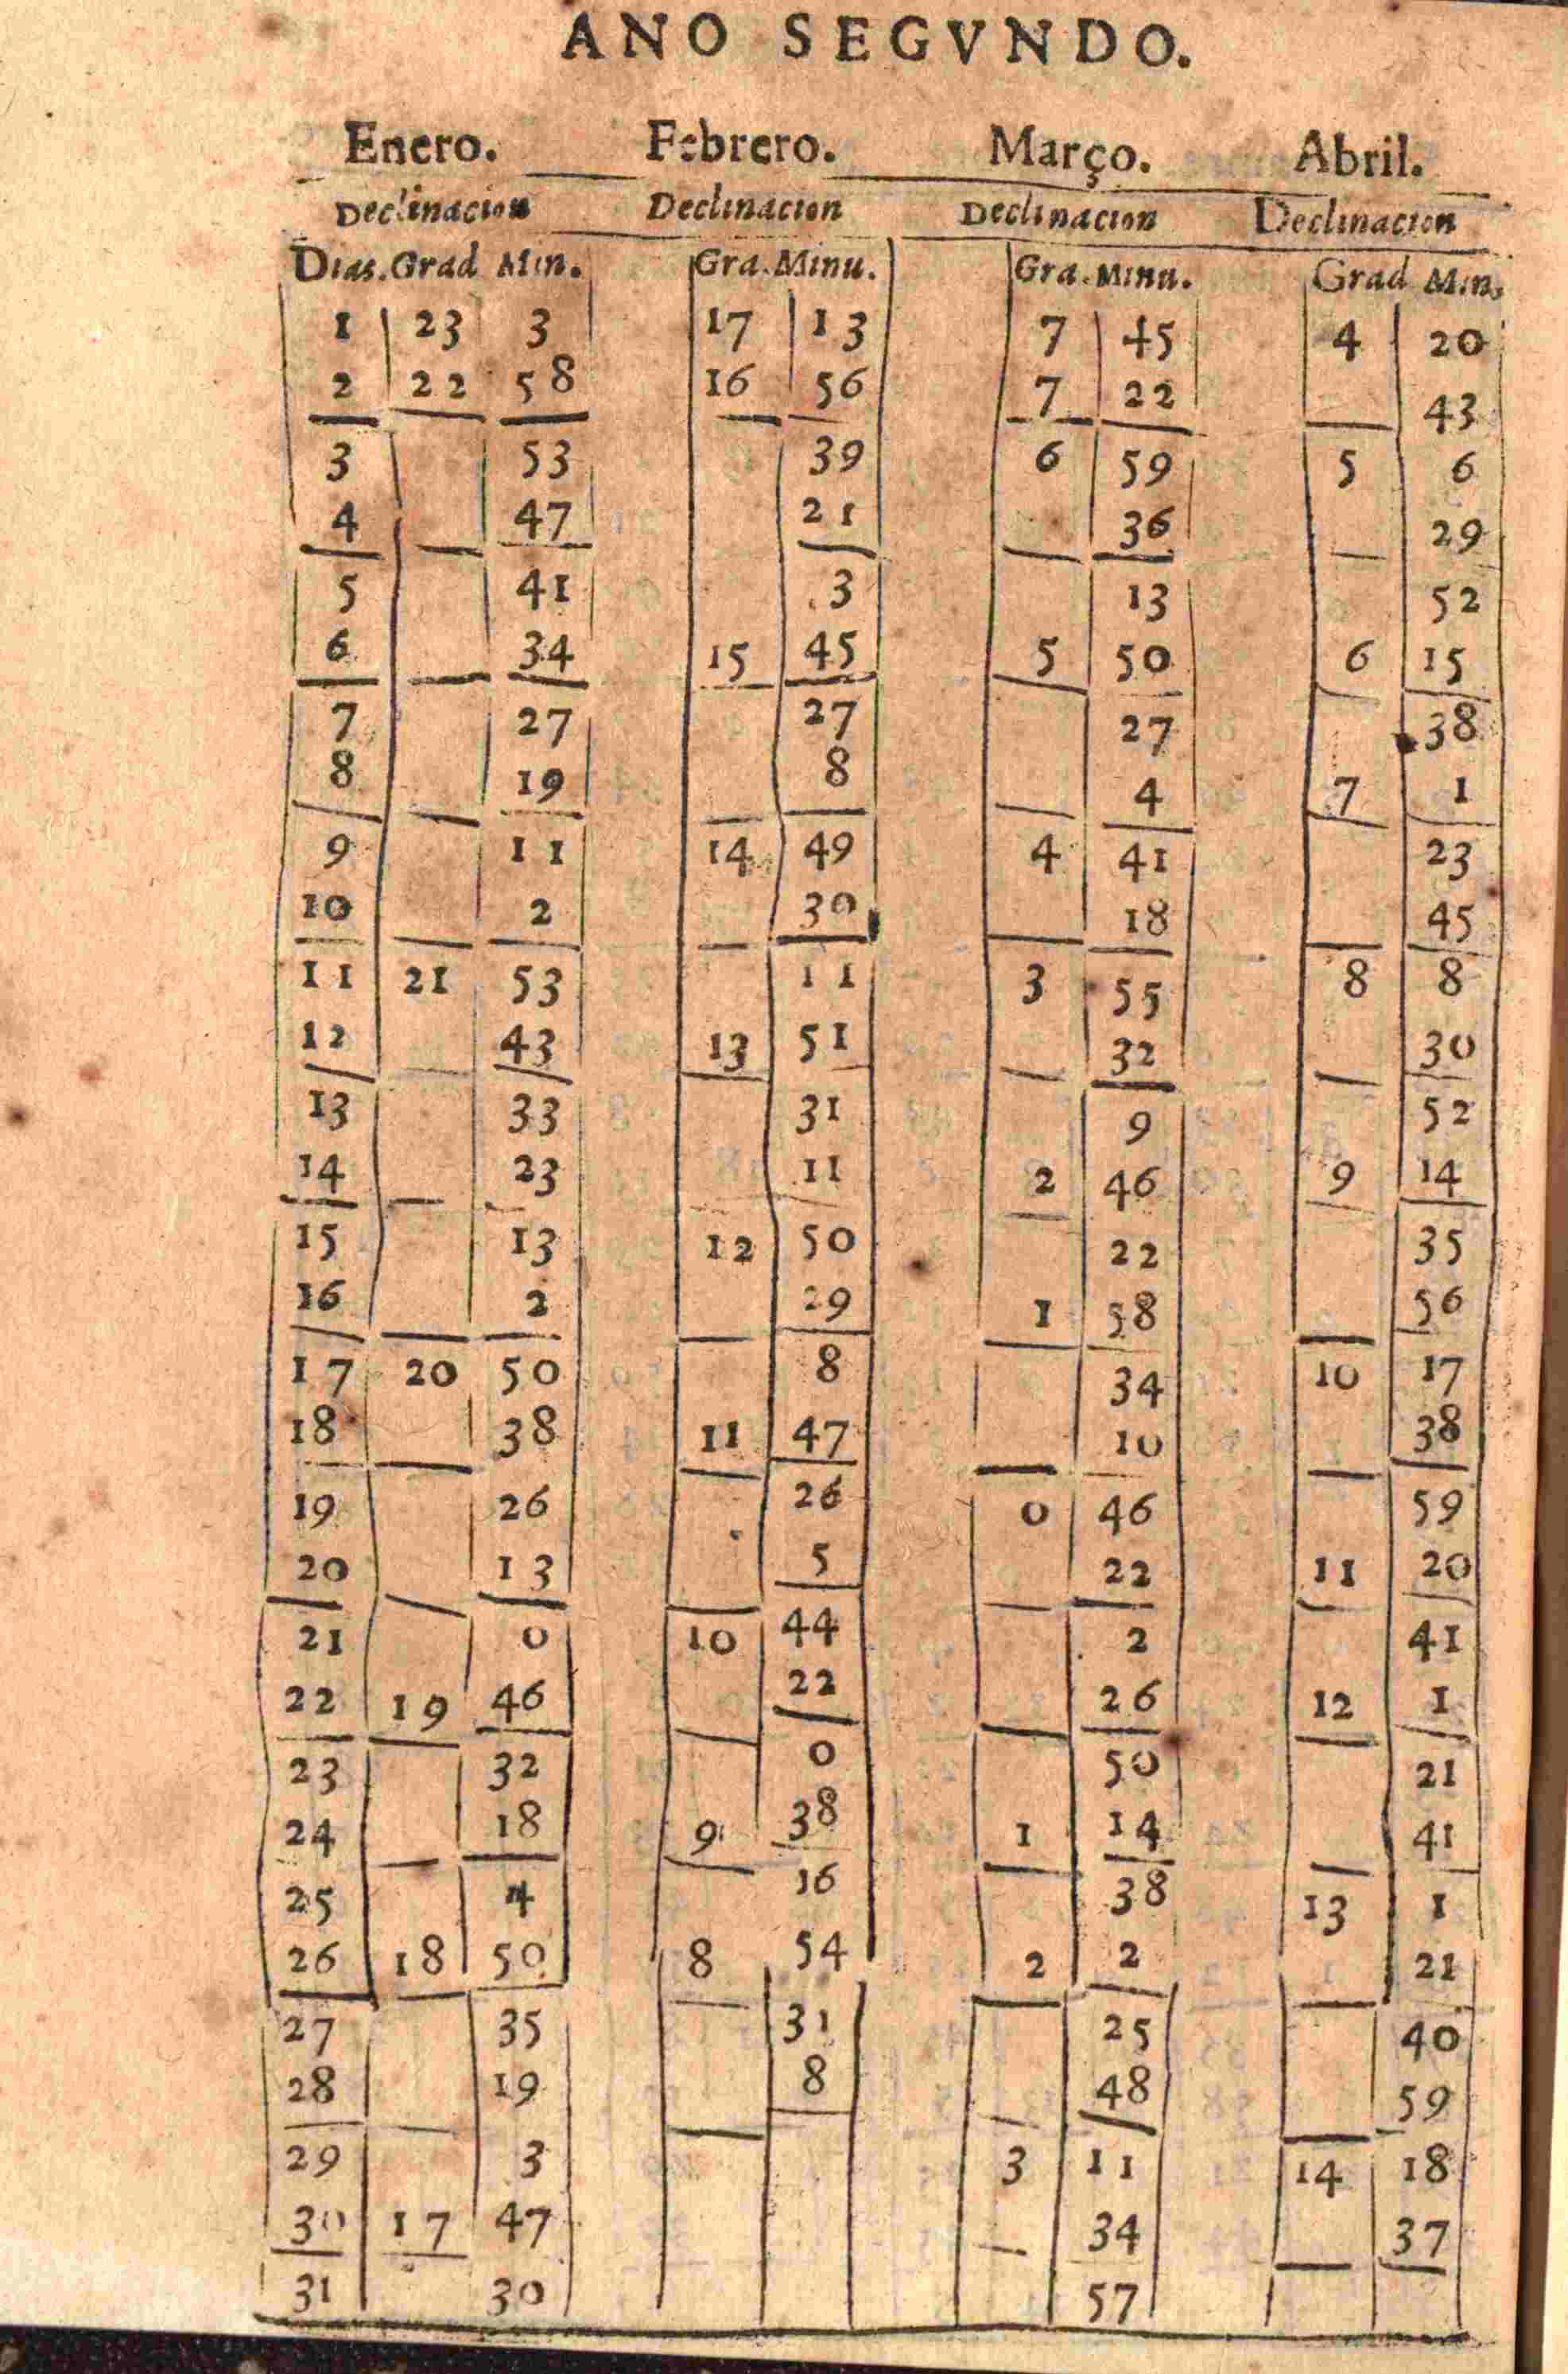 ANO SEGVNDO.
Enero. Febrero. Março. Abril.
Declinacion Declinacion Declinacion Declinacion
Dias. Grad Min. Gra. Minu. Gra. Minu. Grad Min.
1 23 3 17 13 7 45 4 20
2 22 58 16 56 7 22 43
3 53 39 6 59 5 6
4 47 21 36 29
5 41 3 13 52
6 34 15 45 5 50 6 15
7 27 27 27 38
8 19 8 4 7 1
9 11 14 49 4 41 23
10 2 30 18 45
11 21 53 11 3 55 8 8
12 43 13 51 32 30
13 33 31 9 52
14 23 11 2 46 9 14
15 13 12 50 22 35
16 2 29 1 58 56
17 20 50 8 34 10 17
18 38 11 47 10 38
19 26 26 0 46 59
20 13 5 22 11 20
21 0 10 44 2 41
22 19 46 22 26 12 1
23 32 0 50 21
24 18 9 38 1 14 41
25 4 16 38 13 1
26 18 50 8 54 2 2 21
27 35 31 25 40
28 19 8 48 59
29 3 3 11 14 18
30 17 47 34 37
31 30 57